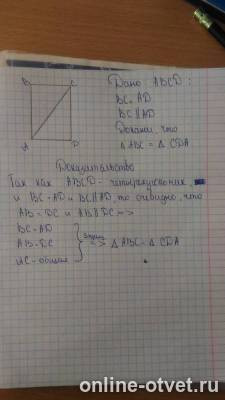 B
C
A
D
Дано ABCD:
BC = AD
BC || AD
Докажи, что
△ ABC = △ CDA
Доказательство
Так как ABCD - четырехугольник,
и BC = AD и BC || AD, то очевидно, что
AB = DC и AB || DC =>
BC = AD
AB = DC
AC - общая
=> △ ABC = △ CDA
online-otvet.ru